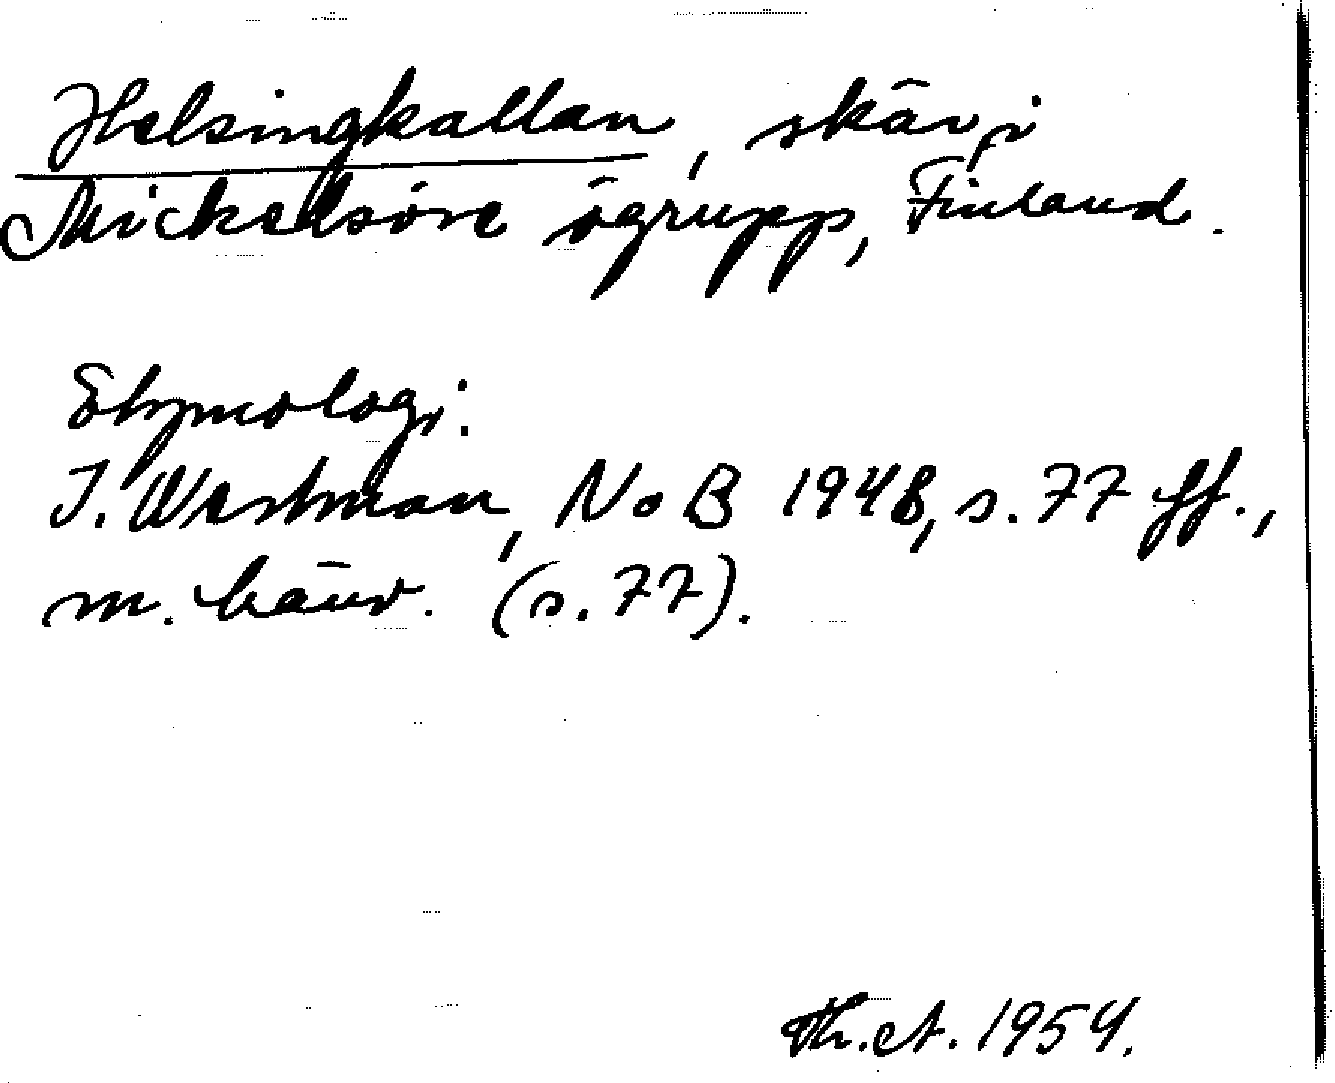 Helsingkallan, skär i
Mickelsöre ögrupp, Finland.
Etymologi:
I. Westman, NoB 1948, s. 77 ff.,
m. hänv. (s. 77).
Th. A. 1954.